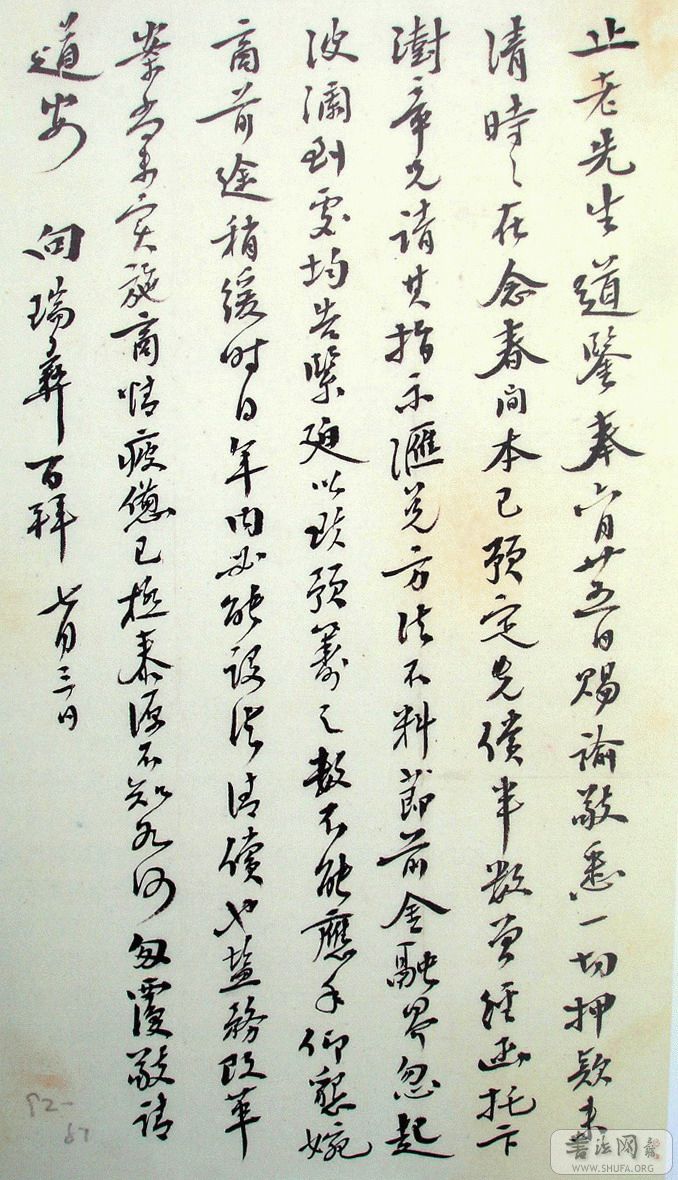 止老先生道鑒奉六月廿五日賜諭敬悉一切押款未
清時々在念春間本已預定先償半數曾經函托卞
澍章兄請其指示滙兌方法不料節前金融界忽起
波瀾到處均告緊迫以致預籌之數不能應手仰懇婉
商前途稍緩时日年內必能設法清償也鹽務改革
案尚未實施商情疲憊已極泰源不知如何匆覆敬請
道安 向瑞彝百拜 七月三日
92-67
書法网
WWW.SHUFA.ORG